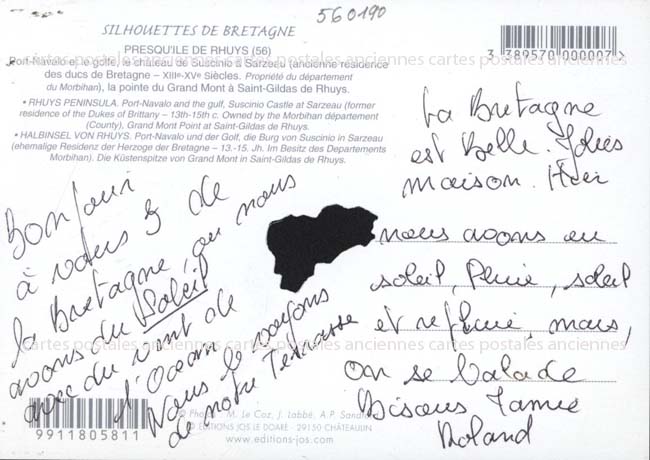 560190
SILHOUETTES DE BRETAGNE
PRESQU'ILE DE RHUYS (56)
Port-Navalo et le golfe, le château de Suscinio à Sarzeau (ancienne résidence
des ducs de Bretagne – XIIIe-XVe Siècles. Propriété du département
du Morbihan), la pointe du Grand Mont à Saint-Gildas de Rhuys.
• RHUYS PENINSULA. Port-Navalo and the gulf, Suscinio Castle at Sarzeau (former
residence of the Dukes of Brittany – 13th-15th c. Owned by the Morbihan département
(County), Grand Mont Point at Saint-Gildas de Rhuys.
• HALBINSEL VON RHUYS. Port-Navalo und der Golf, die Burg von Suscinio in Sarzeau
(ehemalige Residenz der Herzoge der Bretagne – 13.-15. Jh. Im Besitz des Departements
Morbihan). Die Küstenspitze von Grand Mont in Saint-Gildas de Rhuys.
cartes postales anciennes cartes postales anciennes cartes postales anciennes
3 389570 000007 >
Bonjour
à vous 3 de
la Bretagne, ou nous
avons du Soleil
avec du vent de
l'Océan
Nous le voyons
de notre Terrasse
La Bretagne
est Belle. Jolies
maison. Hier
nous avons eu
soleil, Pluie, soleil
et repluie, mais,
on se balade
Bisous
Roland
cartes postales anciennes cartes postales anciennes cartes postales anciennes
9911805811
© Photos M. Le Coz, J. Labbé, A.P.
© EDITIONS JOS LE DOARÉ - 29150 CHÂTEAULIN
www.editions-jos.com